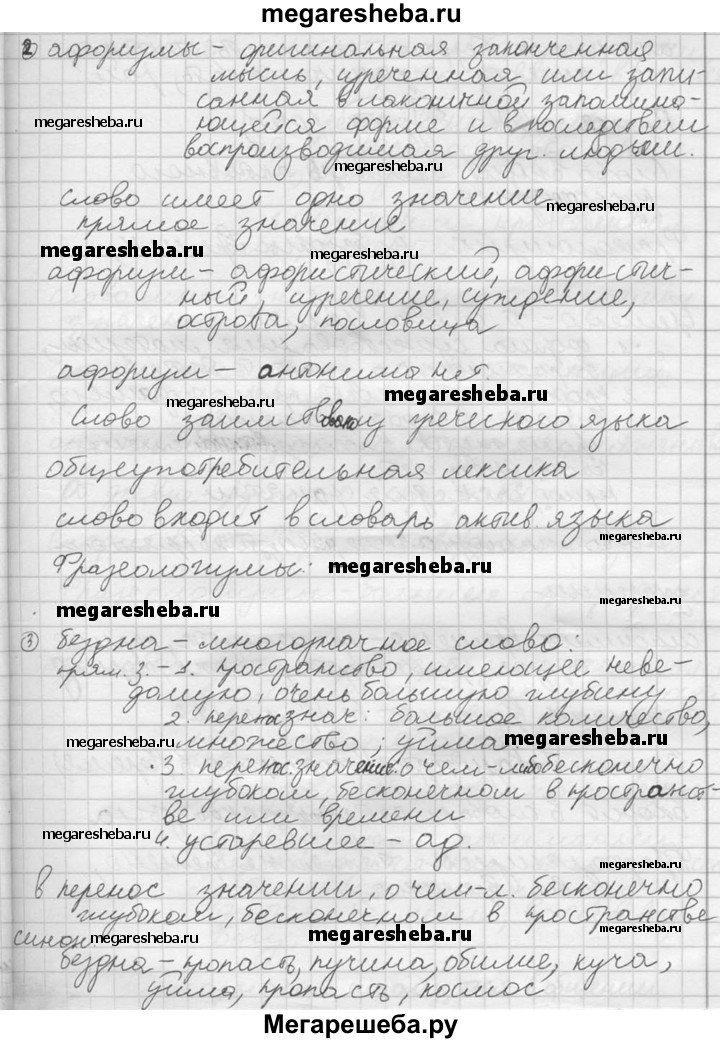 megaresheba.ru
② афоризмы – оригинальная законченная
мысль, изреченная или запи-
санная в лаконичной запомина-
megaresheba.ru
ющейся форме и впоследствем
воспроизводимая друг. людьми.
megaresheba.ru
слово имеет одно значение
megaresheba.ru
прямое значение
megaresheba.ru
megaresheba.ru
афоризм – афористический, афористич-
ный, изречение, суждение,
острота, пословица
афоризм – антонима нет
megaresheba.ru
megaresheba.ru
Слово заимствовано из греческого языка
общеупотребительная лексика
слово входит в словарь актив. языка
megaresheba.ru
Фразеологизмы:
megaresheba.ru
megaresheba.ru
③ бездна – многозначное слово:
прям. з. – 1. пространство, имеющее неве-
домую, очень большую глубину
2. перенос знач: большое количество,
множество; уйма
megaresheba.ru
megaresheba.ru
3. перенос. значение: о чем-либо бесконечно
глубоком, бесконечном в пространст-
ве или времени
megaresheba.ru
4. устаревшее – ад.
megaresheba.ru
в перенос значении, о чем-л. бесконечно
глубоком, бесконечном в пространстве
синон
megaresheba.ru
megaresheba.ru
megaresheba.ru
бездна – пропасть, пучина, обилие, куча,
уйма, пропасть, космос
Мегарешеба.ру